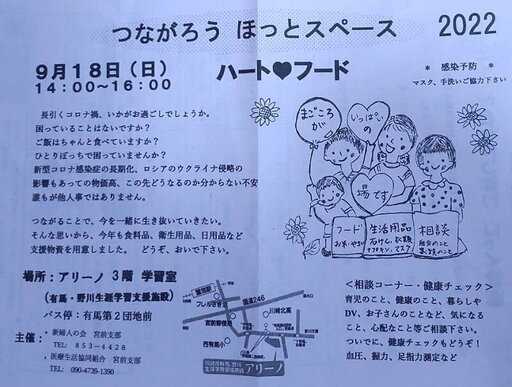 つながろう ほっとスペース 2022
9月18日（日）
14：00～16：00
ハート♥フード
＊ 感染予防 ＊
マスク、手洗いご協力下さい
長引くコロナ禍、いかがお過ごしでしょうか。
困っていることはないですか？
ご飯はちゃんと食べていますか？
ひとりぼっちで困っていませんか？
新型コロナ感染症の長期化、ロシアのウクライナ侵略の
影響もあっての物価高、この先どうなるのか分からない不安
誰もが他人事ではありません。
つながることで、今を一緒に生き抜いていきたい。
そんな思いから、今年も食料品、衛生用品、日用品など
支援物資を用意しました。 どうぞ、おいで下さい。
まごころが
いっぱいの
場です
フード
お米・やさい
生活用品
石けん、衣類
ナプキン、マスク
相談
自分のこと
家族のこと
場所：アリーノ 3階 学習室
（有馬・野川生涯学習支援施設）
バス停：有馬第2団地前
主催：
新婦人の会 宮前支部
TEL 853－4428
医療生活協同組合 宮前支部
TEL：090-4739-1390
鷺沼駅
フレルさぎ沼
国道246
宮前郵便局
川崎北高
西有馬小
川崎市有馬・野川
生涯学習支援施設 アリーノ
＜相談コーナー・健康チェック＞
育児のこと、健康のこと、暮らしや
DV、お子さんのことなど、気になる
こと、心配なこと等ご相談下さい。
ついでに、健康チェックもどうぞ！
血圧、握力、足指力測定など